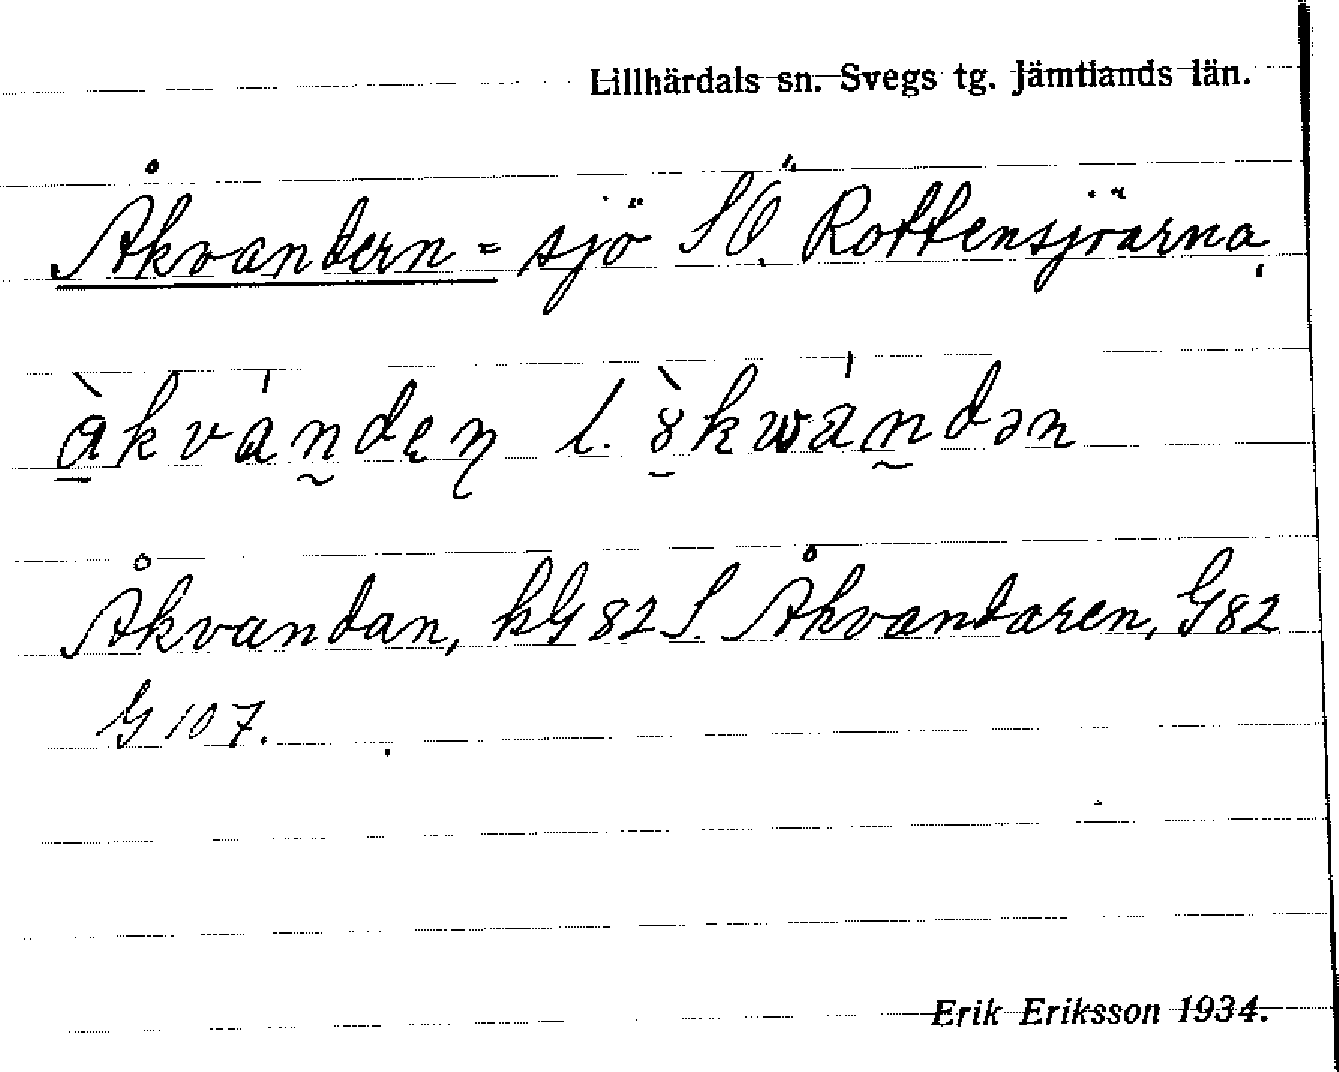 Lillhärdals sn. Svegs tg. Jämtlands län.
Åkvandern = sjö SÖ. Rottensjöarna,
àkvándęn l. 8̀kwándən
Åkvandan, kG 82 S. Åkvandaren, G 82
G 107.
Erik Eriksson 1934.